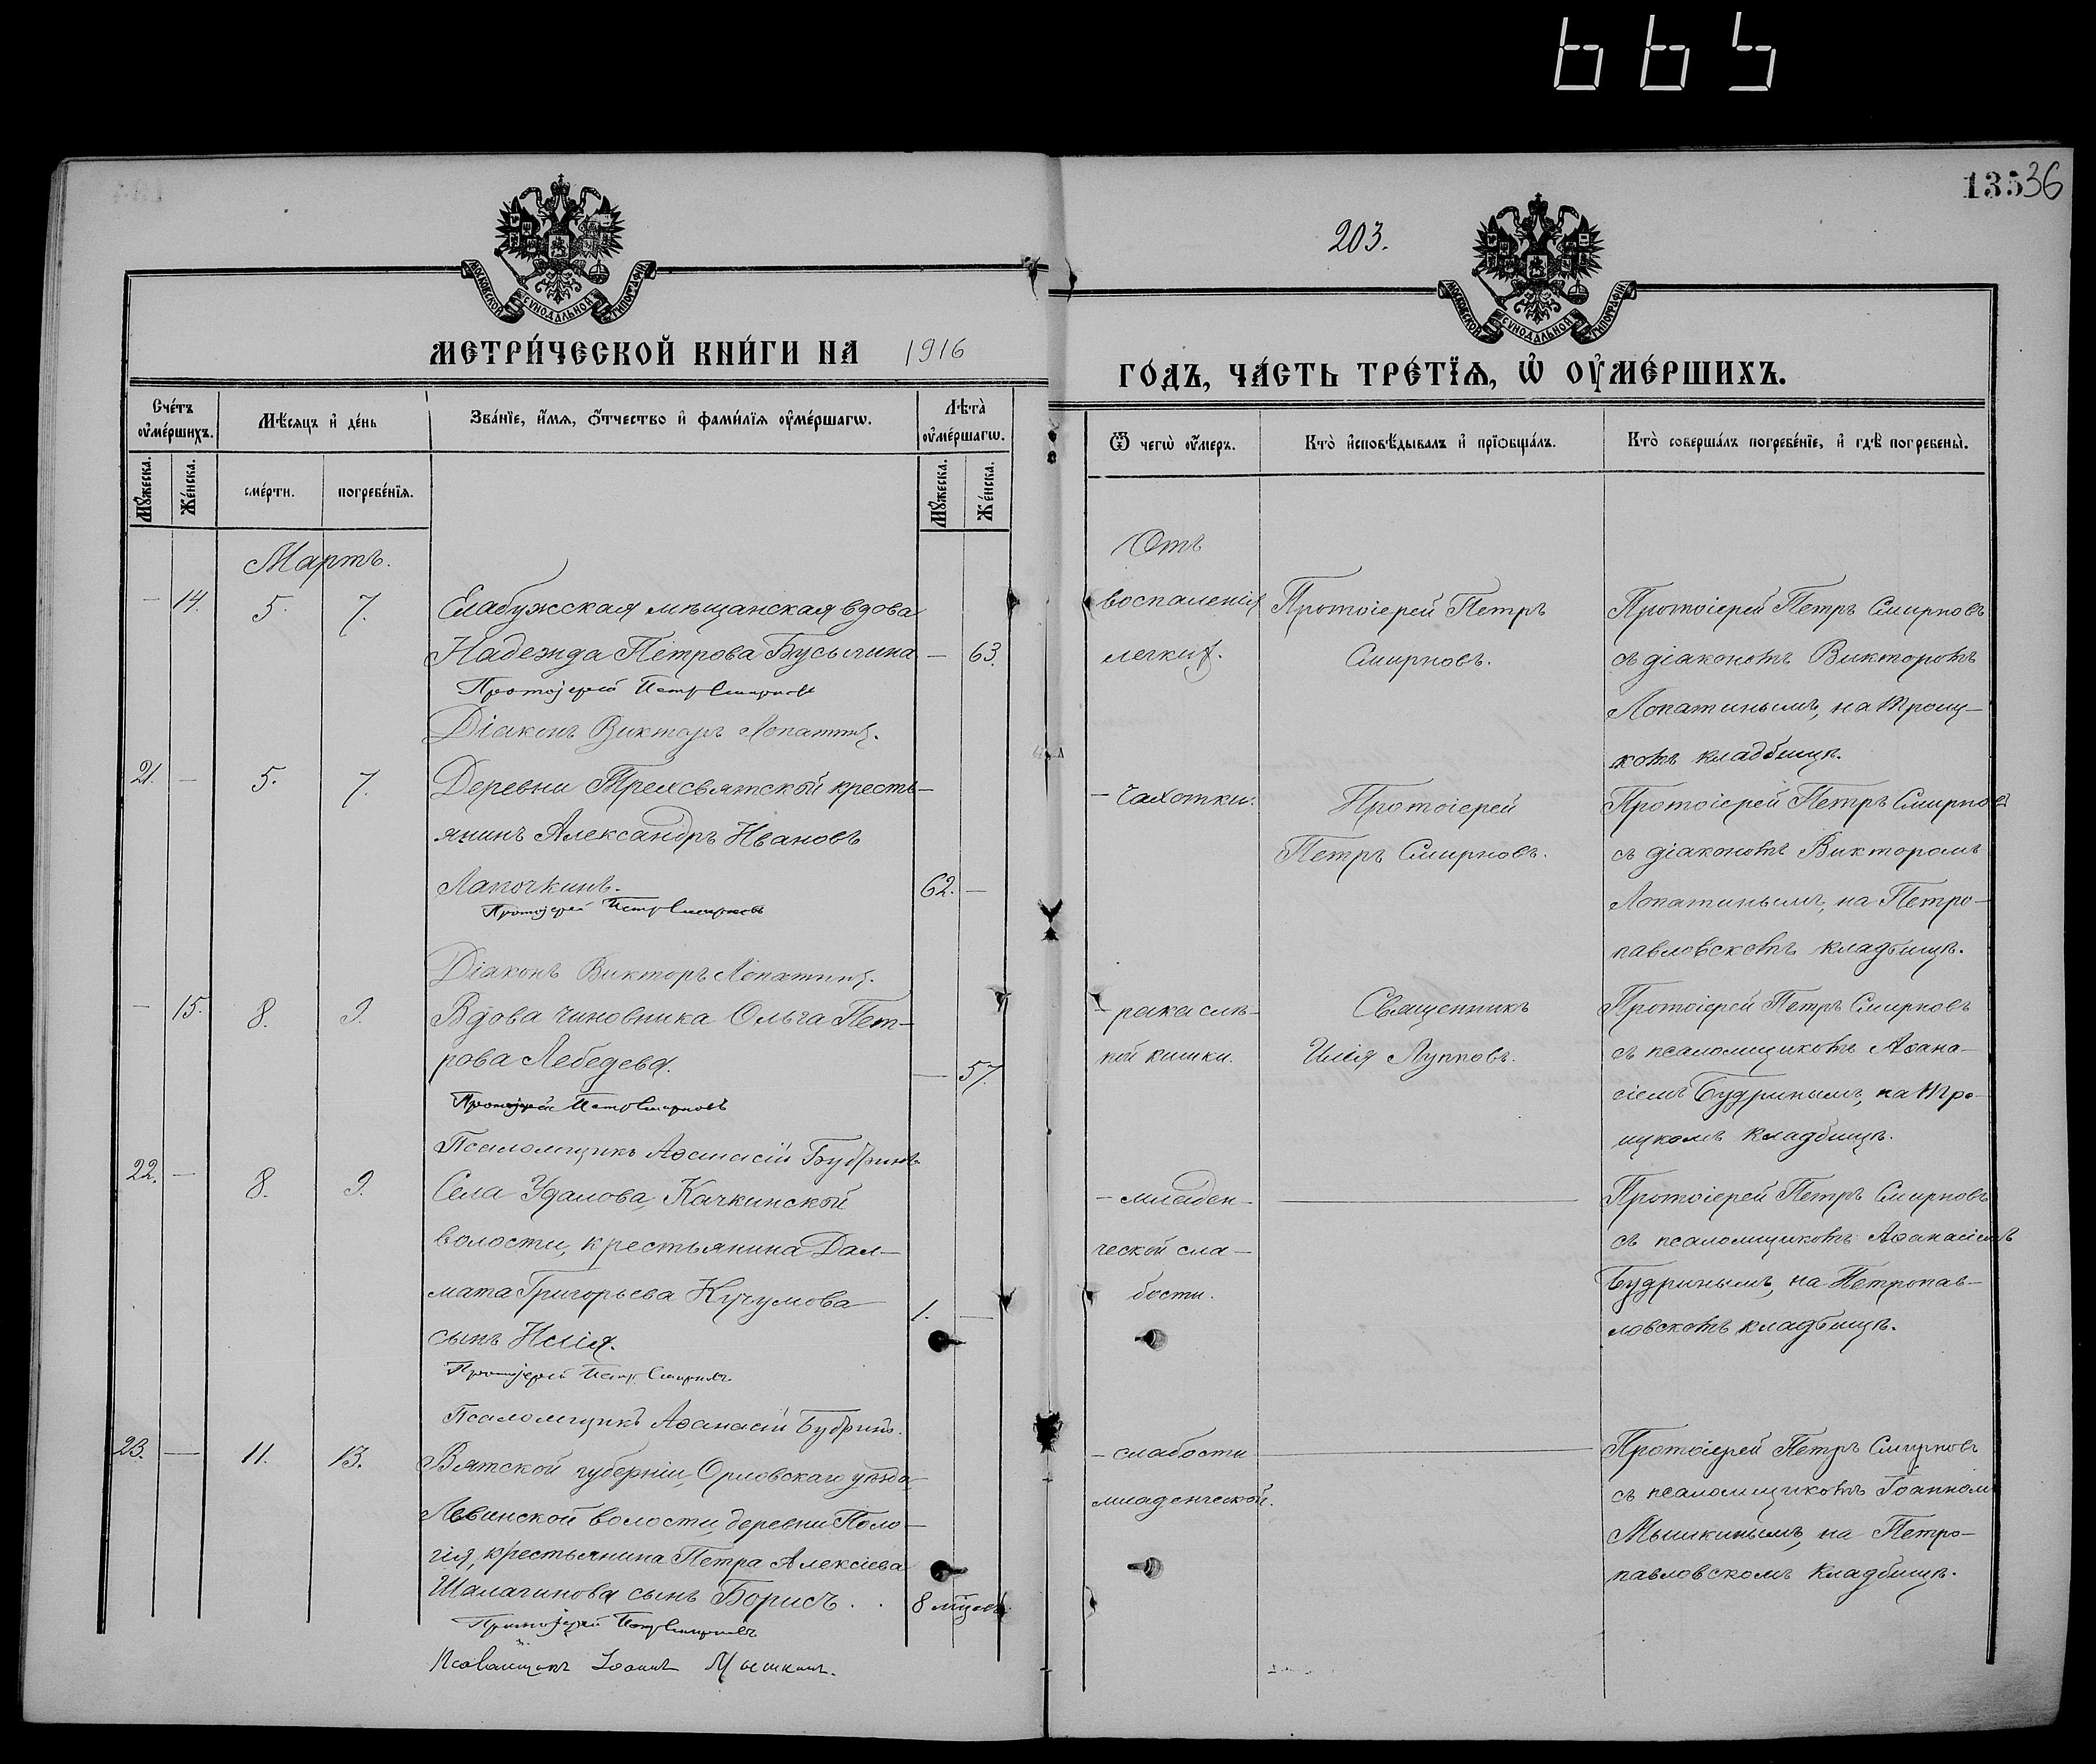 665
13536
203.
МОСКОВСКОЙ СѴНОДАЛЬНОЙ ТИПОГРАФІИ
МОСКОВСКОЙ СѴНОДАЛЬНОЙ ТИПОГРАФІИ
МЕТРИ́ЧЕСКОЙ КНИ́ГИ НА 1916
ГО́ДЪ, ЧА́СТЬ ТРЕ́ТЇѦ, Ѡ҆ ОУ҆МЕ́РШИХЪ.
Сче́тъ оу҆ме́ршихъ.
Мѣ́сѧцъ и҆ де́нь
Зва́нїе, и҆́мѧ, ѻ҆́тчество и҆ фами́лїѧ оу҆ме́ршагѡ.
Лѣ́та оу҆ме́ршагѡ.
Мꙋ́жеска.
Же́нска.
сме́рти.
погребе́нїѧ.
Мꙋ́жеска.
Же́нска.
Ѿ чегѡ̀ оу҆́меръ.
Кто̀ и҆сповѣ́дывалъ и҆ прїѡбща́лъ.
Кто̀ соверша́лъ погребе́нїе, и҆ гдѣ̀ погребены̀.
Мартъ.
Отъ
— 14. 5. 7.
Елабужская мѣщанская вдова
Надежда Петрова Бусыгина — 63.
Протоіерей Петръ Смирновъ
Діаконъ Викторъ Лопатинъ.
воспаленія
легкихъ.
Протоіерей Петръ
Смирновъ.
Протоіерей Петръ Смирновъ
съ діакономъ Викторомъ
Лопатинымъ, на Троиц-
комъ кладбищѣ.
21. — 5. 7.
Деревни Трехсвятской кресть-
янинъ Александръ Ивановъ
Лапочкинъ. 62. —
Протоіерей Петръ Смирновъ
Діаконъ Викторъ Лопатинъ.
— чахотки.
Протоіерей
Петръ Смирновъ.
Протоіерей Петръ Смирновъ
съ діакономъ Викторомъ
Лопатинымъ, на Петро-
павловскомъ кладбищѣ.
— 15. 8. 9.
Вдова чиновника Ольга Пет-
рова Лебедева. — 57.
Протоіерей Петръ Смирновъ
Псаломщикъ Аѳанасій Будринъ
— рака слѣ-
пой кишки.
Священникъ
Илія Лупповъ.
Протоіерей Петръ Смирновъ
съ псаломщикомъ Аѳана-
сіемъ Будринымъ, на Тро-
ицкомъ кладбищѣ.
22. — 8. 9.
Села Удалова, Качкинской
волости, крестьянина Дал-
мата Григорьева Кучумова 1. —
сынъ Илія.
Протоіерей Петръ Смирновъ
Псаломщикъ Аѳанасій Будринъ.
— младен-
ческой сла-
бости.
Протоіерей Петръ Смирновъ
съ псаломщикомъ Аѳанасіемъ
Будринымъ, на Петропав-
ловскомъ кладбищѣ.
23. — 11. 13.
Вятской губерніи, Орловскаго уѣзда
Левинской волости, деревни Поло-
гія, крестьянина Петра Алексіева
Шалагинова сынъ Борисъ. 8 мцевъ
Протоіерей Петръ Смирновъ
Псаломщикъ Іоаннъ Мышкинъ.
— слабости
младенческой.
Протоіерей Петръ Смирновъ
съ псаломщикомъ Іоанномъ
Мышкинымъ, на Петро-
павловскомъ кладбищѣ.